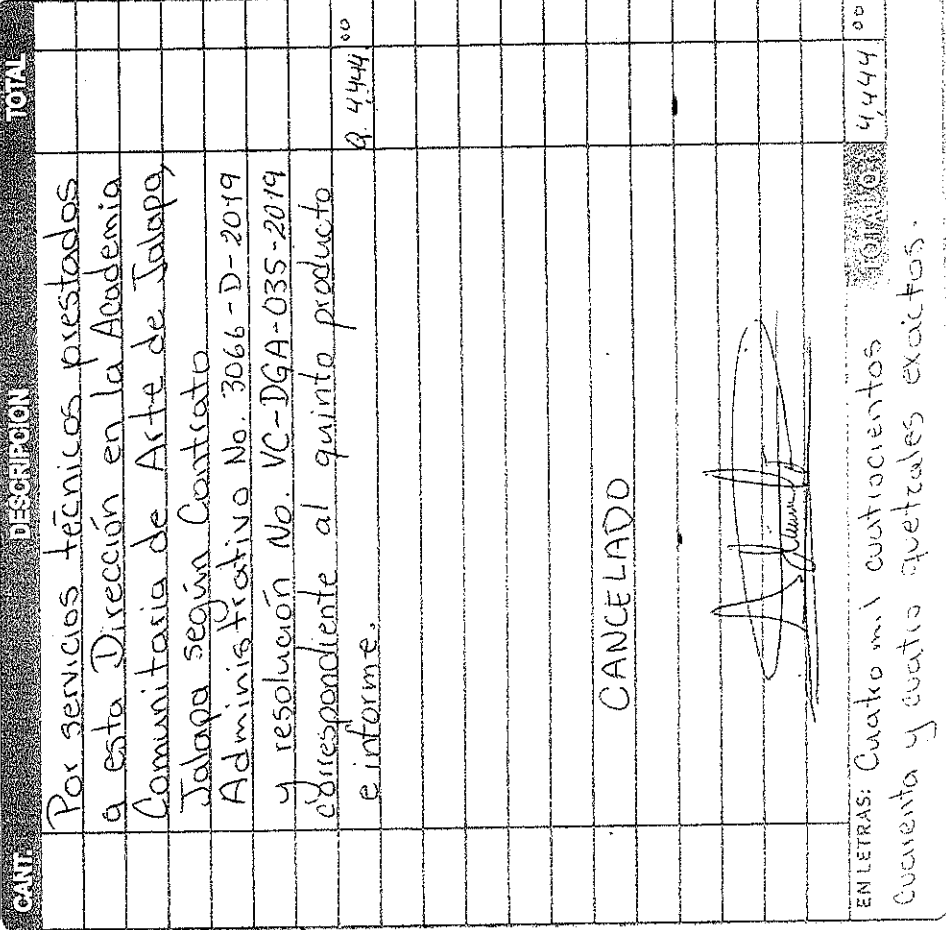 CANT. DESCRIPCION TOTAL
Por servicios técnicos prestados
a esta Dirección en la Academia
Comunitaria de Arte de Jalapa,
Jalapa según Contrato
Administrativo No. 3066-D-2019
y resolución No. VC-DGA-035-2019
correspondiente al quinto producto
e informe. Q. 4,444 00
CANCELADO
EN LETRAS: Cuatro mil cuatrocientos TOTAL Q. 4,444 00
cuarenta y cuatro quetzales exactos.